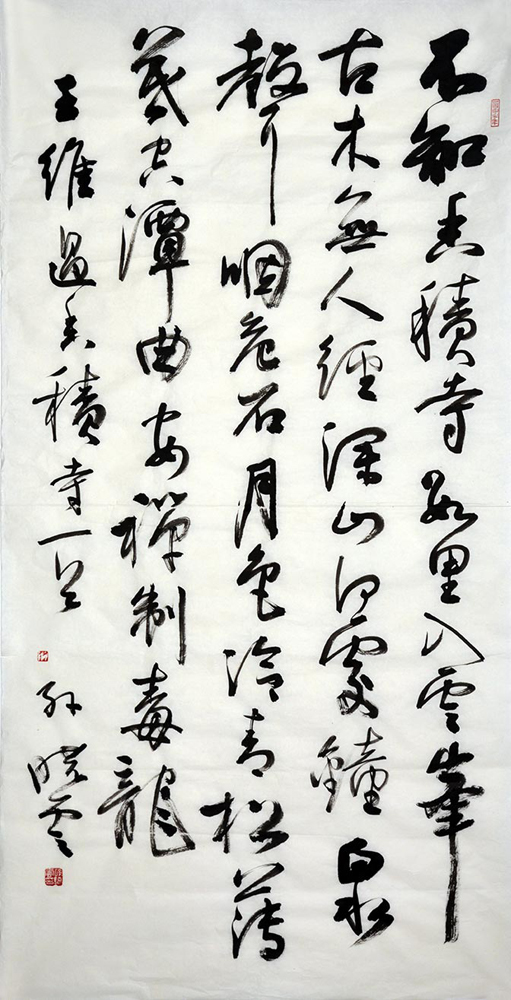 不知香積寺數里入雲峯
古木無人經深山何處鐘泉
聲咽危石月色冷青松薄
暮空潭曲安禪制毒龍
王維過香積寺一首 孫曉雲